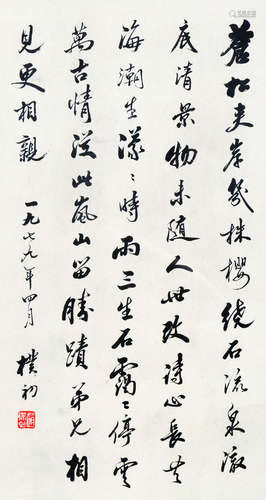 蒼松夾岸幾株櫻繞石流泉澈
底清景物未隨人世改詩心長共
海潮生濛〻時雨三生石靄〻停雲
萬古情從此嵐山留勝蹟弟兄相
見更相親
一九七九年四月
樸初